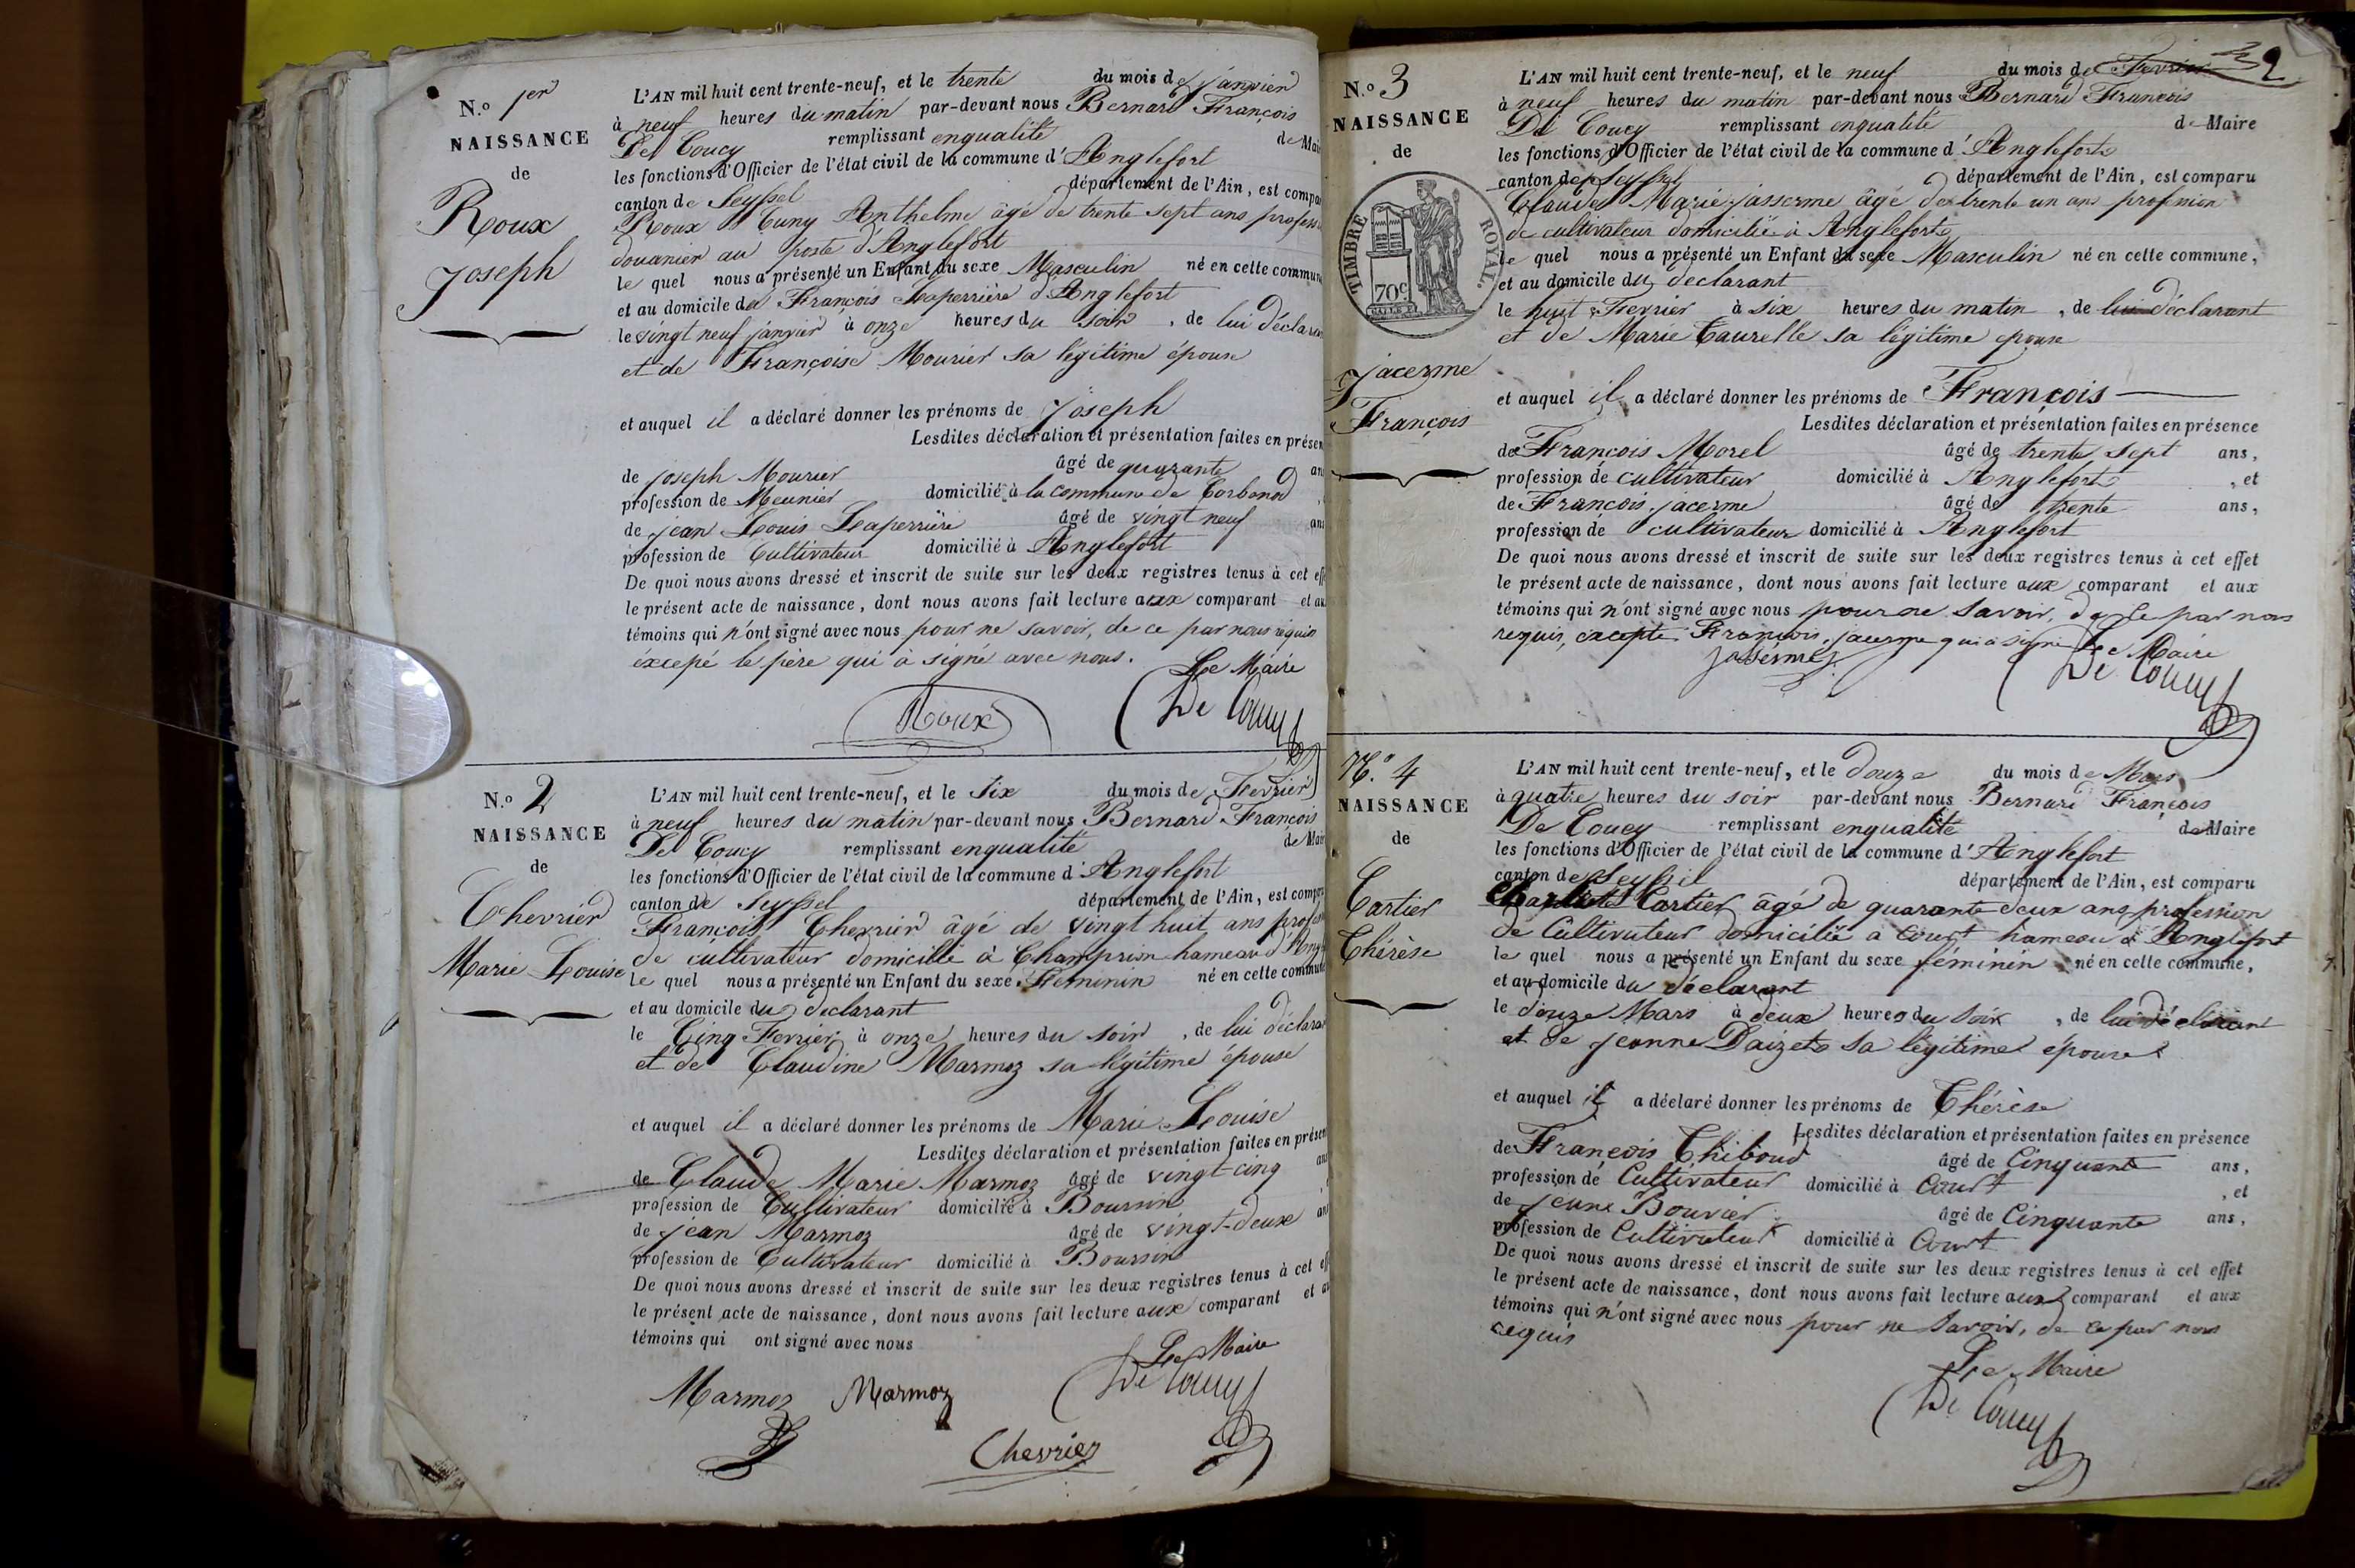 N.o 1er
NAISSANCE
de
Roux
Joseph
L'AN mil huit cent trente-neuf, et le trente du mois de janvier
à neuf heures du matin par-devant nous Bernard François
De Coucy remplissant enqualité de Mai
les fonctions d'Officier de l'état civil de la commune d'Anglefort
canton de Seyssel département de l'Ain, est compa
Roux Cuny Anthelme âgé de trente sept ans profess
douanier au poste d'Anglefort
le quel nous a présenté un Enfant du sexe Masculin né en cette commun
et au domicile de François Laperrière d'Anglefort
le vingt neuf janvier à onze heures du soir, de lui déclara
et de Françoise Mourier sa légitime épouse
et auquel il a déclaré donner les prénoms de Joseph
Lesdites déclaration et présentation faites en présen
de joseph Mourier âgé de quarante an
profession de Meunier domicilié à la commune de Corbonod
de jean Louis Laperrière âgé de vingt neuf ans
profession de Cultivateur domicilié à Anglefort
De quoi nous avons dressé et inscrit de suite sur les deux registres tenus à cet eff
le présent acte de naissance, dont nous avons fait lecture aux comparant et au
témoins qui n'ont signé avec nous pour ne savoir, de ce par nous requis
éxcepé le père qui à signé avec nous. Le Maire
Roux De Coucy
N.o 2
NAISSANCE
de
Chevrier
Marie Louise
L'AN mil huit cent trente-neuf, et le Six du mois de Fevrier
à neuf heures du matin par-devant nous Bernard François
De Coucy remplissant enqualité de Mair
les fonctions d'Officier de l'état civil de la commune d'Anglefort
canton de Seyssel département de l'Ain, est compa
François Chevrier âgé de vingt huit ans profes
de cultivateur domicilié à Champrion hameau d'Ang
le quel nous a présenté un Enfant du sexe Feminin né en cette commune
et au domicile du declarant
le Cinq Fevrier à onze heures du soir, de lui déclara
et de Claudine Marmoz sa légitime épouse
et auquel il a déclaré donner les prénoms de Marie Louise
Lesdites déclaration et présentation faites en présen
de Claude Marie Marmoz âgé de vingt-cinq ans
profession de Cultivateur domicilié à Boursin
de jean Marmoz âgé de vingt-deux an
profession de Cultivateur domicilié à Boursin
De quoi nous avons dressé et inscrit de suite sur les deux registres tenus à cet eff
le présent acte de naissance, dont nous avons fait lecture aux comparant et au
témoins qui ont signé avec nous
Le Maire
Marmoz Marmoz De Coucy
Chevrier
32
N.o 3
NAISSANCE
de
TIMBRE ROYAL.
70c
Jacerme
François
L'AN mil huit cent trente-neuf, et le neuf du mois de Fevrier
à neuf heures du matin par-devant nous Bernard François
De Coucy remplissant enqualité de Maire
les fonctions d'Officier de l'état civil de la commune d'Anglefort
canton de Seyssel département de l'Ain, est comparu
Claude Marie jasserme âgé de trente un ans profession
de cultivateur domicilié à Anglefort
le quel nous a présenté un Enfant du sexe Masculin né en cette commune,
et au domicile du declarant
le huit Fevrier à six heures du matin, de lui déclarant
et de Marie Taurelle sa légitime epouse
et auquel il a déclaré donner les prénoms de François
Lesdites déclaration et présentation faites en présence
de François Morel âgé de trente sept ans,
profession de cultivateur domicilié à Anglefort, et
de François jacerme âgé de trente ans,
profession de cultivateur domicilié à Anglefort
De quoi nous avons dressé et inscrit de suite sur les deux registres tenus à cet effet
le présent acte de naissance, dont nous avons fait lecture aux comparant et aux
témoins qui n'ont signé avec nous pour ne savoir, de ce par nous
requis, excepté François jacerme qui a signé Le Maire
jasermes De Coucy
N.o 4
NAISSANCE
de
Cartier
Thérèse
L'AN mil huit cent trente-neuf, et le douze du mois de Mars
à quatre heures du soir par-devant nous Bernard François
De Coucy remplissant enqualité de Maire
les fonctions d'Officier de l'état civil de la commune d'Anglefort
canton de Seyssel département de l'Ain, est comparu
Cartier âgé de quarante deux ans profession
de Cultivateur domicilié à Court hameau d'Anglefort
le quel nous a présenté un Enfant du sexe féminin né en cette commune,
et au domicile du déclarant
le douze Mars à deux heures du soir, de lui déclarant
et de jeanne Daizet sa légitime épouse
et auquel il a déclaré donner les prénoms de Thérèse
Lesdites déclaration et présentation faites en présence
de François Thiboud âgé de Cinquante ans,
profession de Cultivateur domicilié à Court, et
de jeune Bouvier âgé de Cinquante ans,
profession de Cultivateur domicilié à Court
De quoi nous avons dressé et inscrit de suite sur les deux registres tenus à cet effet
le présent acte de naissance, dont nous avons fait lecture aux comparant et aux
témoins qui n'ont signé avec nous pour ne savoir, de ce par nous
requis
Le Maire
De Coucy